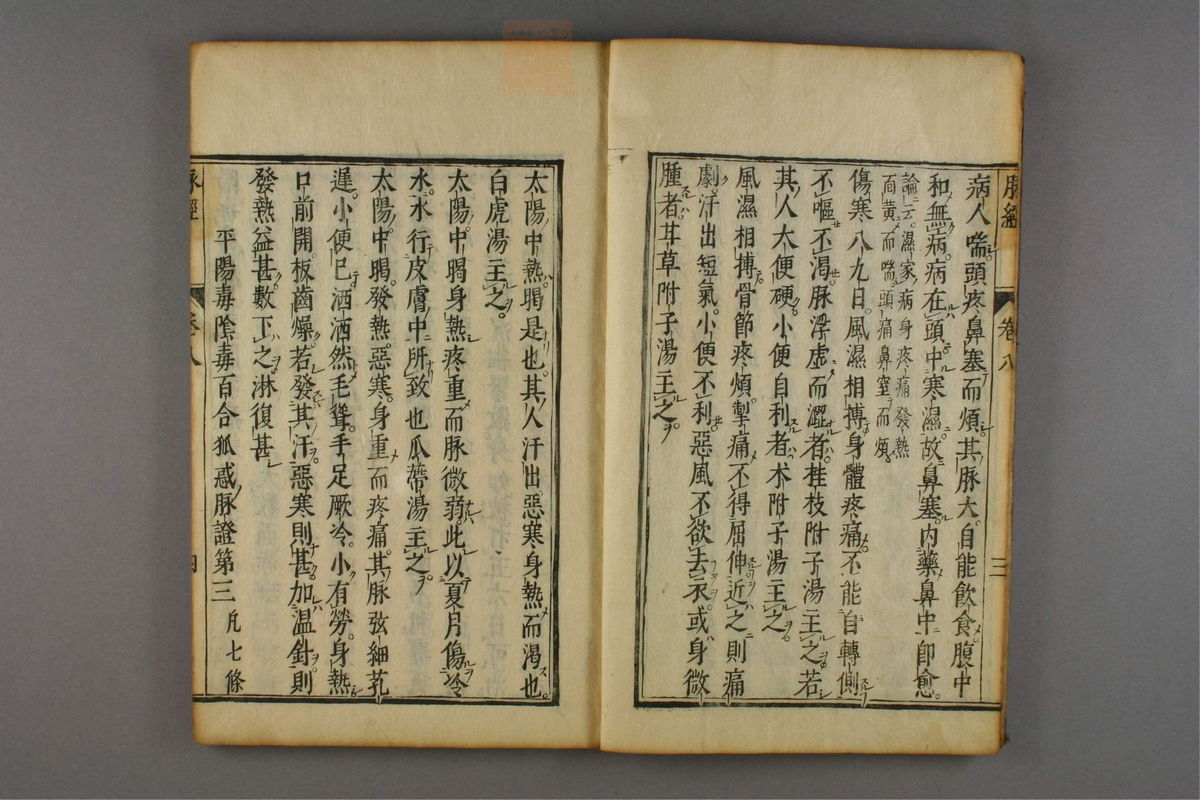 脉經 卷八 三
病人喘頭疼鼻塞而煩其脉大自能飲食腹中
和無病病在頭中寒濕故鼻塞内藥鼻中即愈
論云濕家病身疼痛發熱
面黄而喘頭痛鼻窒而煩
傷寒八九日風濕相搏身體疼痛不能自轉側
不嘔不渴脉浮虚而澀者桂枝附子湯主之若
其人大便硬小便自利者术附子湯主之
風濕相搏骨節疼煩掣痛不得屈伸近之則痛
劇汗出短氣小便不利惡風不欲去衣或身微
腫者甘草附子湯主之
太陽中熱暍是也其人汗出惡寒身熱而渴也
白虎湯主之
太陽中暍身熱疼重而脉微弱此以夏月傷冷
水水行皮膚中所致也瓜蔕湯主之
太陽中暍發熱惡寒身重而疼痛其脉弦細芤
遅小便已洒洒然毛聳手足厥冷小有勞身熱
口前開板齒燥若發其汗惡寒則甚加温針則
發熱益甚數下之淋復甚
平陽毒陰毒百合狐惑脉證第三 凡七條
脉經 卷八 四